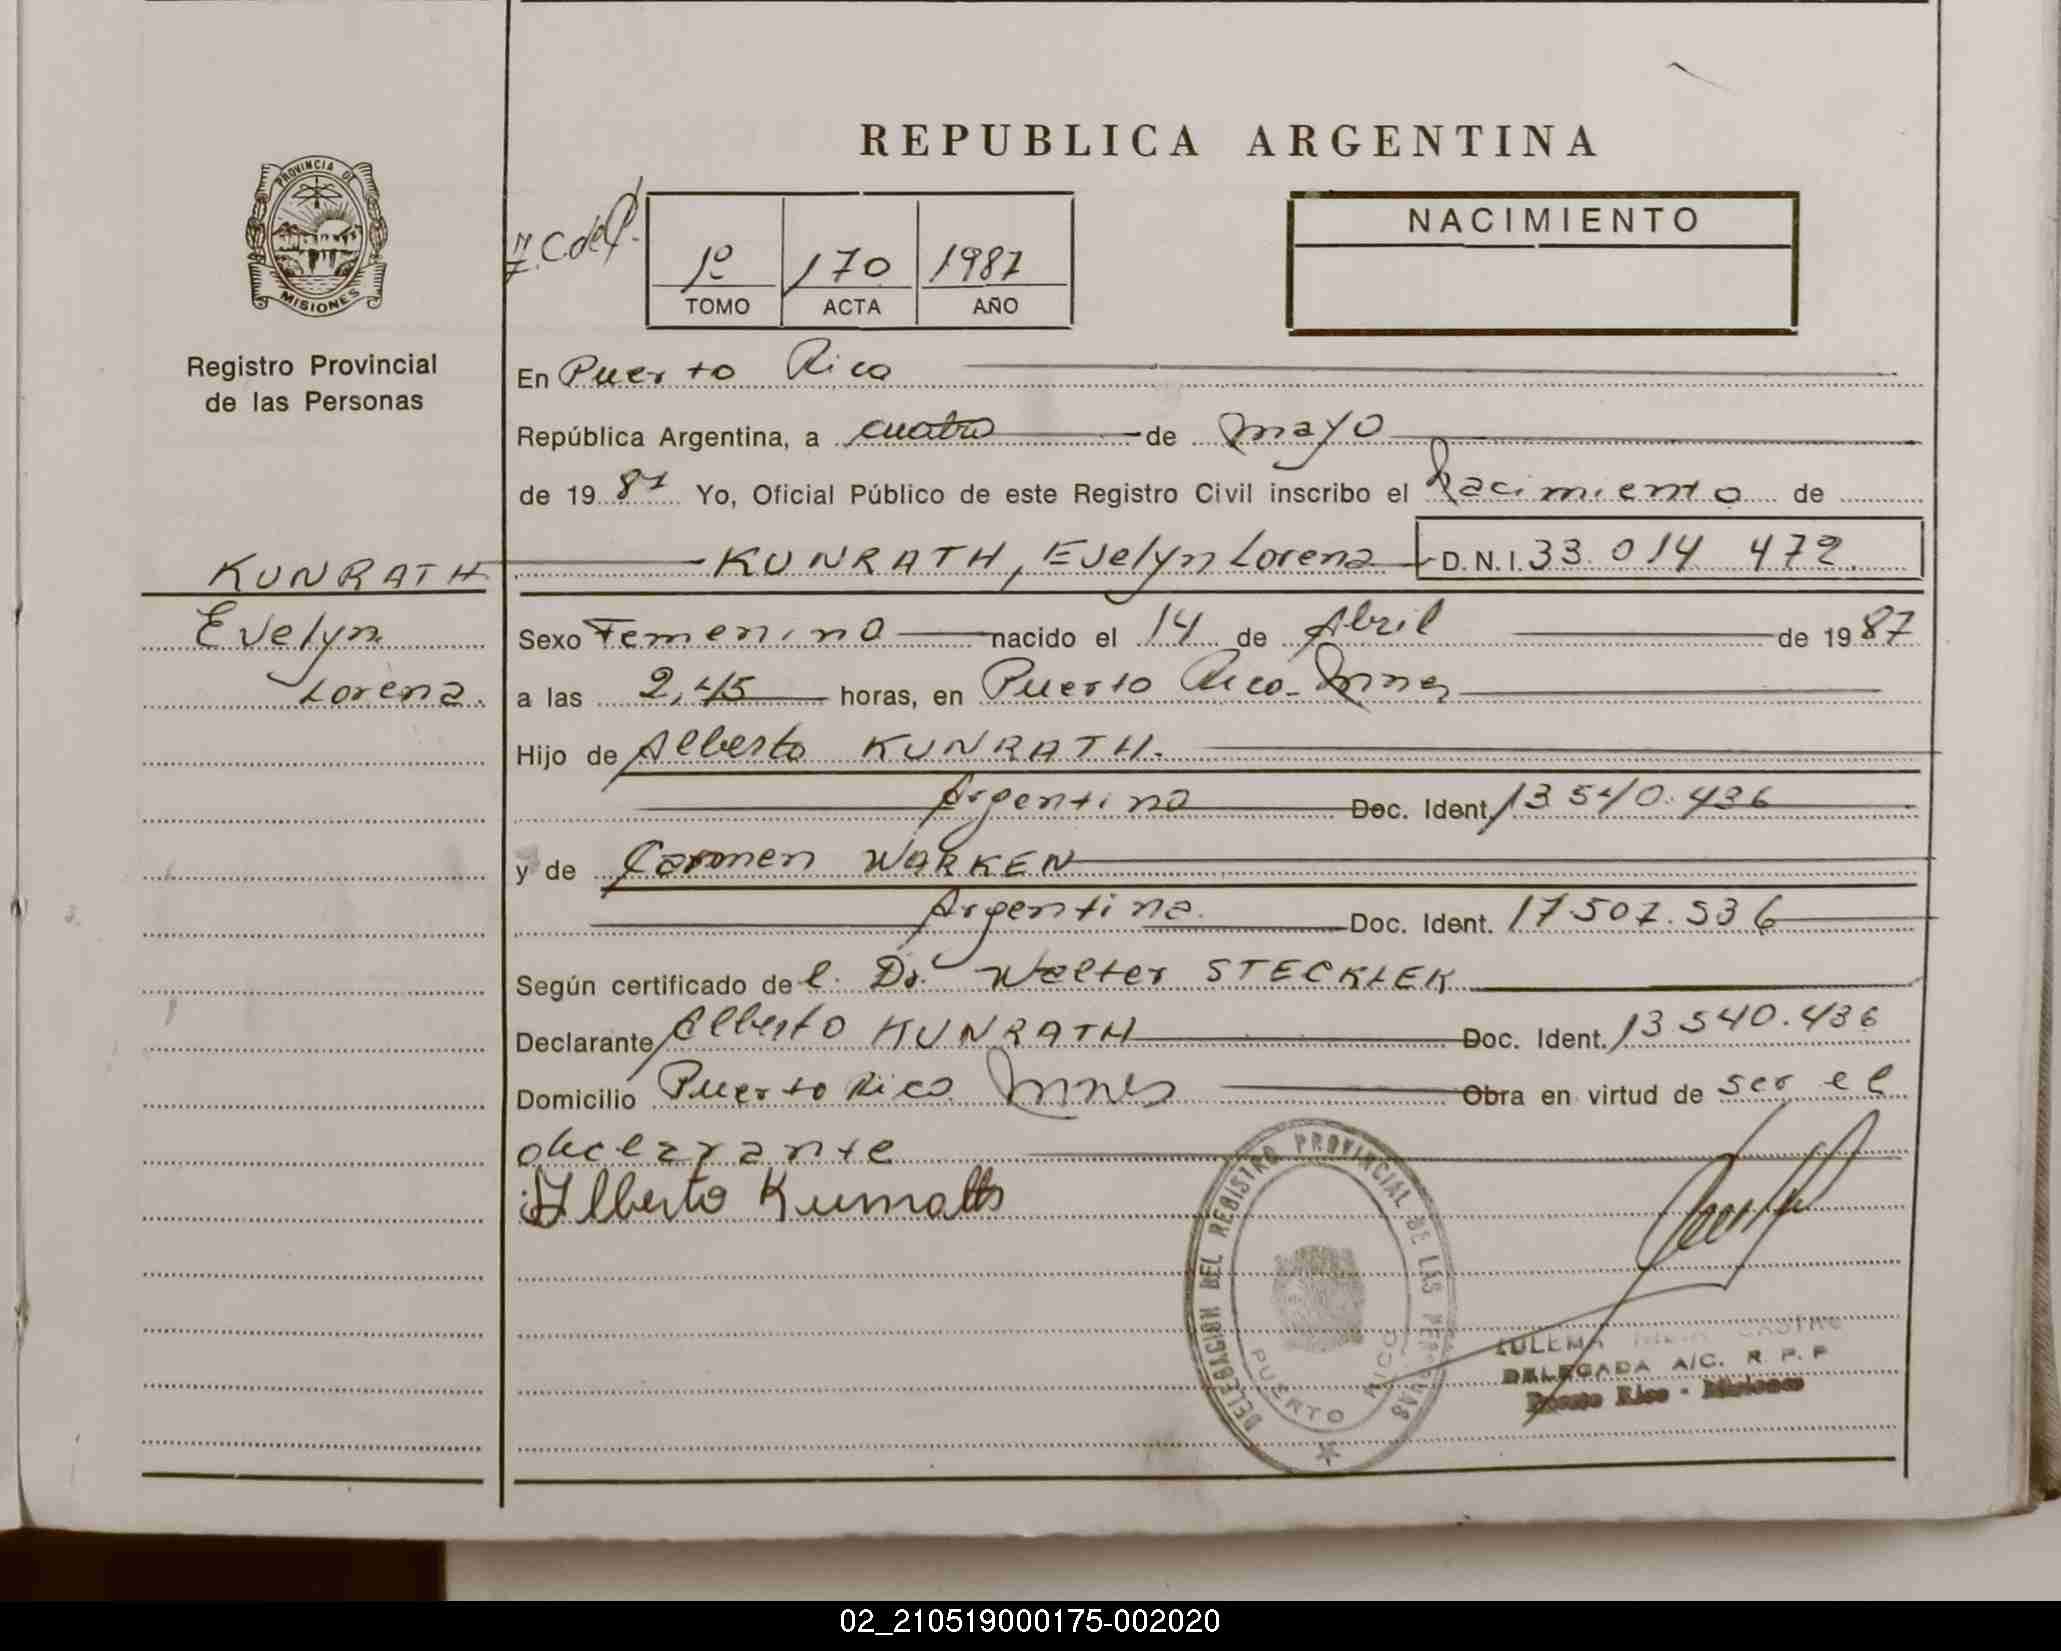 REPUBLICA ARGENTINA
PROVINCIA DE
MISIONES
Registro Provincial
de las Personas
1º 170 1987
TOMO ACTA AÑO
NACIMIENTO
En Puerto Rico
República Argentina, a cuatro de mayo
de 1987 Yo, Oficial Público de este Registro Civil inscribo el Nacimiento de
KUNRATH
KUNRATH, Evelyn Lorena D.N.I. 33.014 472
Evelyn
Lorena.
Sexo Femenino nacido el 14 de Abril de 1987
a las 2,45 horas, en Puerto Rico - Mnes
Hijo de Alberto KUNRATH.
Argentino Doc. Ident. 13.540.436
y de Carmen WARKEN
Argentina. Doc. Ident. 17.507.536
Según certificado del. Dr. Walter
Declarante Alberto KUNRATH Doc. Ident. 13.540.436
Domicilio Puerto Rico Mnes Obra en virtud de ser el
declarante
Alberto
DELEGACION DEL REGISTRO PROVINCIAL DE LAS PERSONAS
PUERTO RICO
CASTRO
DELEGADA A/C. R. P. P
Puerto Rico - Misiones
02_210519000175-002020